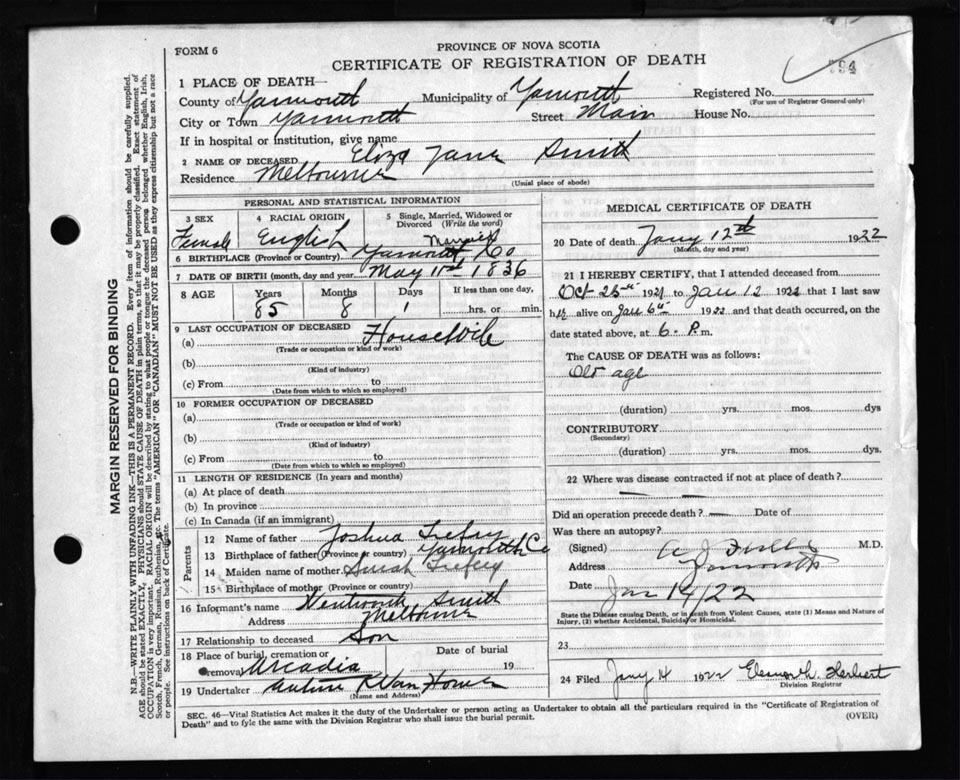 FORM 6
PROVINCE OF NOVA SCOTIA
CERTIFICATE OF REGISTRATION OF DEATH
594
1 PLACE OF DEATH—
County of Yarmouth Municipality of Yarmouth Registered No.
(For use of Registrar General only)
City or Town Yarmouth Street Main House No.
If in hospital or institution, give name
2 NAME OF DECEASED Eliza Jane Smith
Residence Melbourne
(Usual place of abode)
PERSONAL AND STATISTICAL INFORMATION
3 SEX 4 RACIAL ORIGIN 5 Single, Married, Widowed or Divorced (Write the word)
Female English Married
6 BIRTHPLACE (Province or Country) Yarmouth Co
7 DATE OF BIRTH (month, day and year) May 11th 1836
8 AGE Years Months Days If less than one day,
85 8 1 hrs. or min.
9 LAST OCCUPATION OF DECEASED
(a) HouseWife
(Trade or occupation or kind of work)
(b)
(Kind of industry)
(c) From to
(Date from which to which so employed)
10 FORMER OCCUPATION OF DECEASED
(a)
(Trade or occupation or kind of work)
(b)
(Kind of industry)
(c) From to
(Date from which to which so employed)
11 LENGTH OF RESIDENCE (In years and months)
(a) At place of death
(b) In province
(c) In Canada (if an immigrant)
Parents
12 Name of father Joshua Trefry
13 Birthplace of father (Province or country) Yarmouth Co
14 Maiden name of mother Sarah Trefry
15 Birthplace of mother (Province or country)
16 Informant's name Wentworth Smith
Address Melbourne
17 Relationship to deceased Son
18 Place of burial, cremation or removal Arcadia Date of burial 19
19 Undertaker K Van Horne
(Name and Address)
MEDICAL CERTIFICATE OF DEATH
20 Date of death Jany 12th 1922
(Month, day and year)
21 I HEREBY CERTIFY, that I attended deceased from
Oct 25th 1921 to Jan 12 1922 that I last saw
her alive on Jan 6th 1922 and that death occurred, on the
date stated above, at 6. P.m.
The CAUSE OF DEATH was as follows:
Old age
(duration) yrs. mos. dys
CONTRIBUTORY
(Secondary)
(duration) yrs. mos. dys
22 Where was disease contracted if not at place of death?
Did an operation precede death? — Date of
Was there an autopsy?
(Signed) A J M.D.
Address Yarmouth
Date Jan 14/22
State the Disease causing Death, or in death from Violent Causes, state (1) Means and Nature of
Injury, (2) whether Accidental, Suicidal or Homicidal.
23
24 Filed Jany 14 1922 Herbert
Division Registrar
SEC. 46—Vital Statistics Act makes it the duty of the Undertaker or person acting as Undertaker to obtain all the particulars required in the "Certificate of Registration of
Death" and to fyle the same with the Division Registrar who shall issue the burial permit.
(OVER)
MARGIN RESERVED FOR BINDING
N.B.—WRITE PLAINLY WITH UNFADING INK—THIS IS A PERMANENT RECORD. Every item of information should be carefully supplied.
AGE should be stated EXACTLY, PHYSICIANS should STATE CAUSE OF DEATH in plain terms, so that it may be properly classified. Exact statement of
OCCUPATION is very important. RACIAL ORIGIN will be described by stating to what people or tongue the deceased person belonged whether English, Irish,
Scotch, French, German, Russian, Ruthenian, etc. The terms "AMERICAN" OR "CANADIAN" MUST NOT BE USED as they express citizenship but not a race
or people. See instructions on back of Certificate.